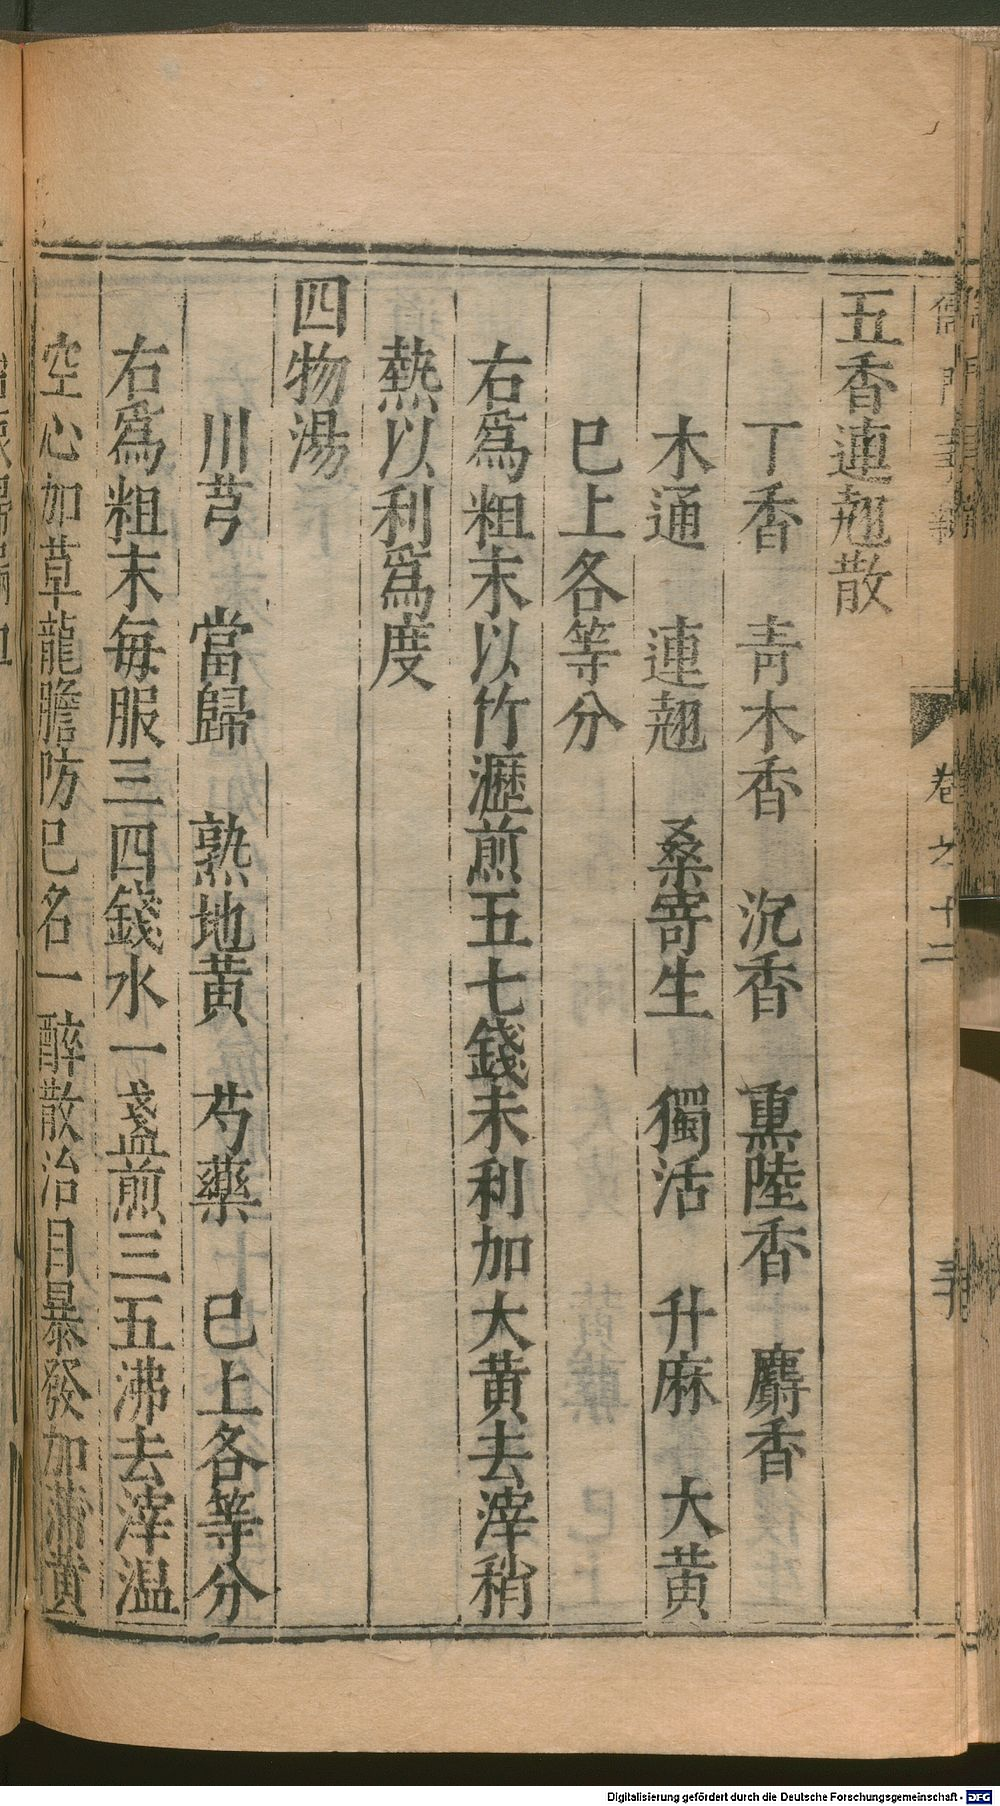 五香連翹散
丁香 青木香 沉香 熏陸香 麝香
木通 連翹 桑寄生 獨活 升麻 大黄
巳上各等分
右爲粗末以竹瀝煎五七錢未利加大黄去滓稍
熱以利爲度
四物湯
川芎 當歸 熟地黄 芍藥 已上各等分
右爲粗末每服三四錢水一盞煎三五沸去滓温
空心加草龍膽防已名一醉散治目暴發加蒲黄
卷之十二
Digitalisierung gefördert durch die Deutsche Forschungsgemeinschaft - DFG